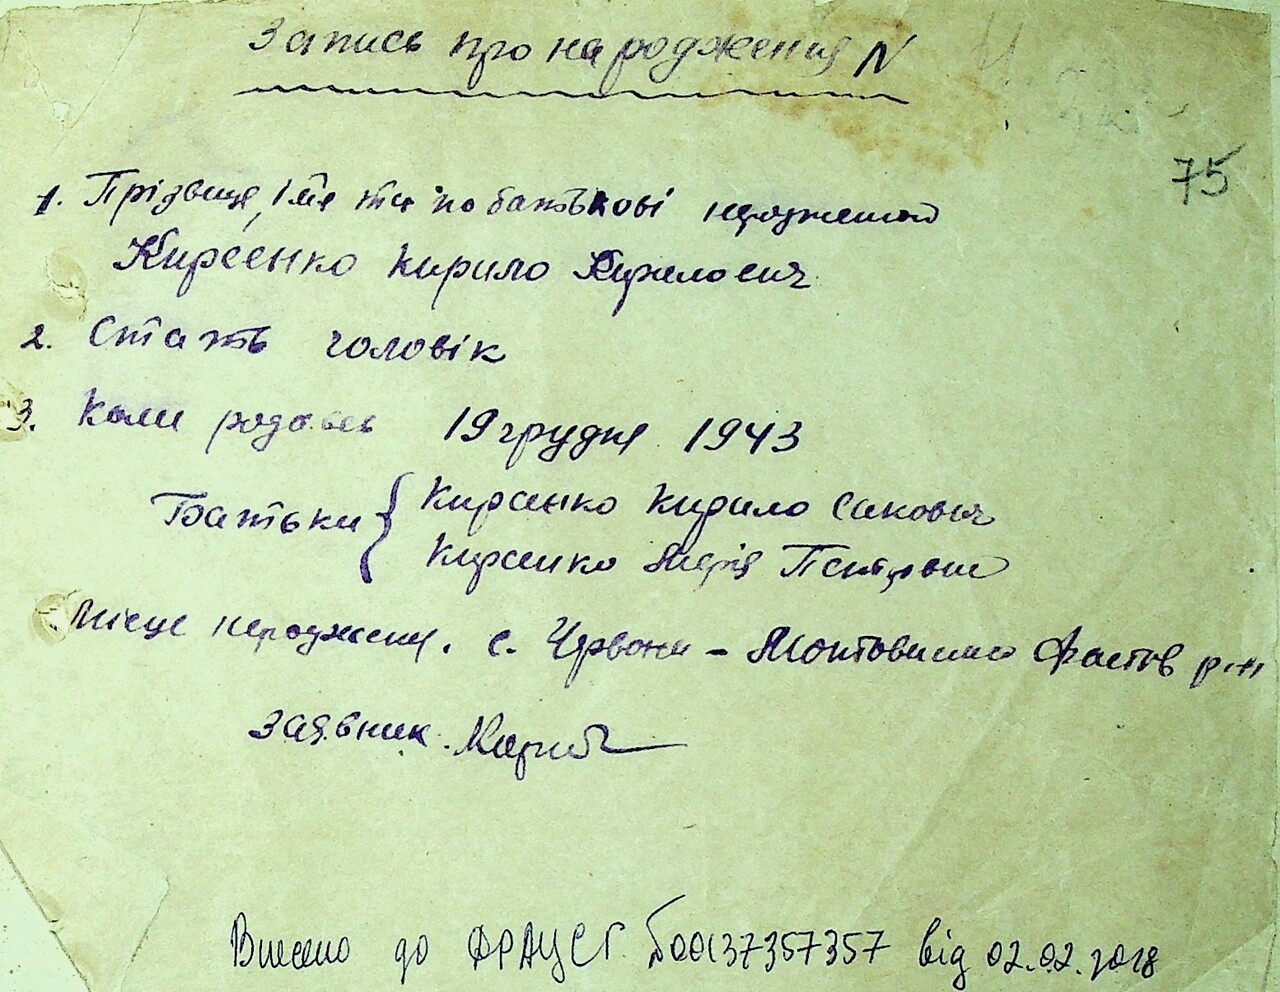 Запись про народження N
75
1. Прізвище, імя та по батькові нарожденої
Кирєєнко Кирило Кирилович
2. Стать чоловік
3. Коли родовсь 19 грудня 1943
Батьки { Кирєнко Кирило Сакович
Кирєнко Марія Петрівни
Місце народження. с. Червоне - Мотовилівка Фастів р-н
Заявник.
Внесено до ФРАЦСГ 00137357357 від 02.02.2018